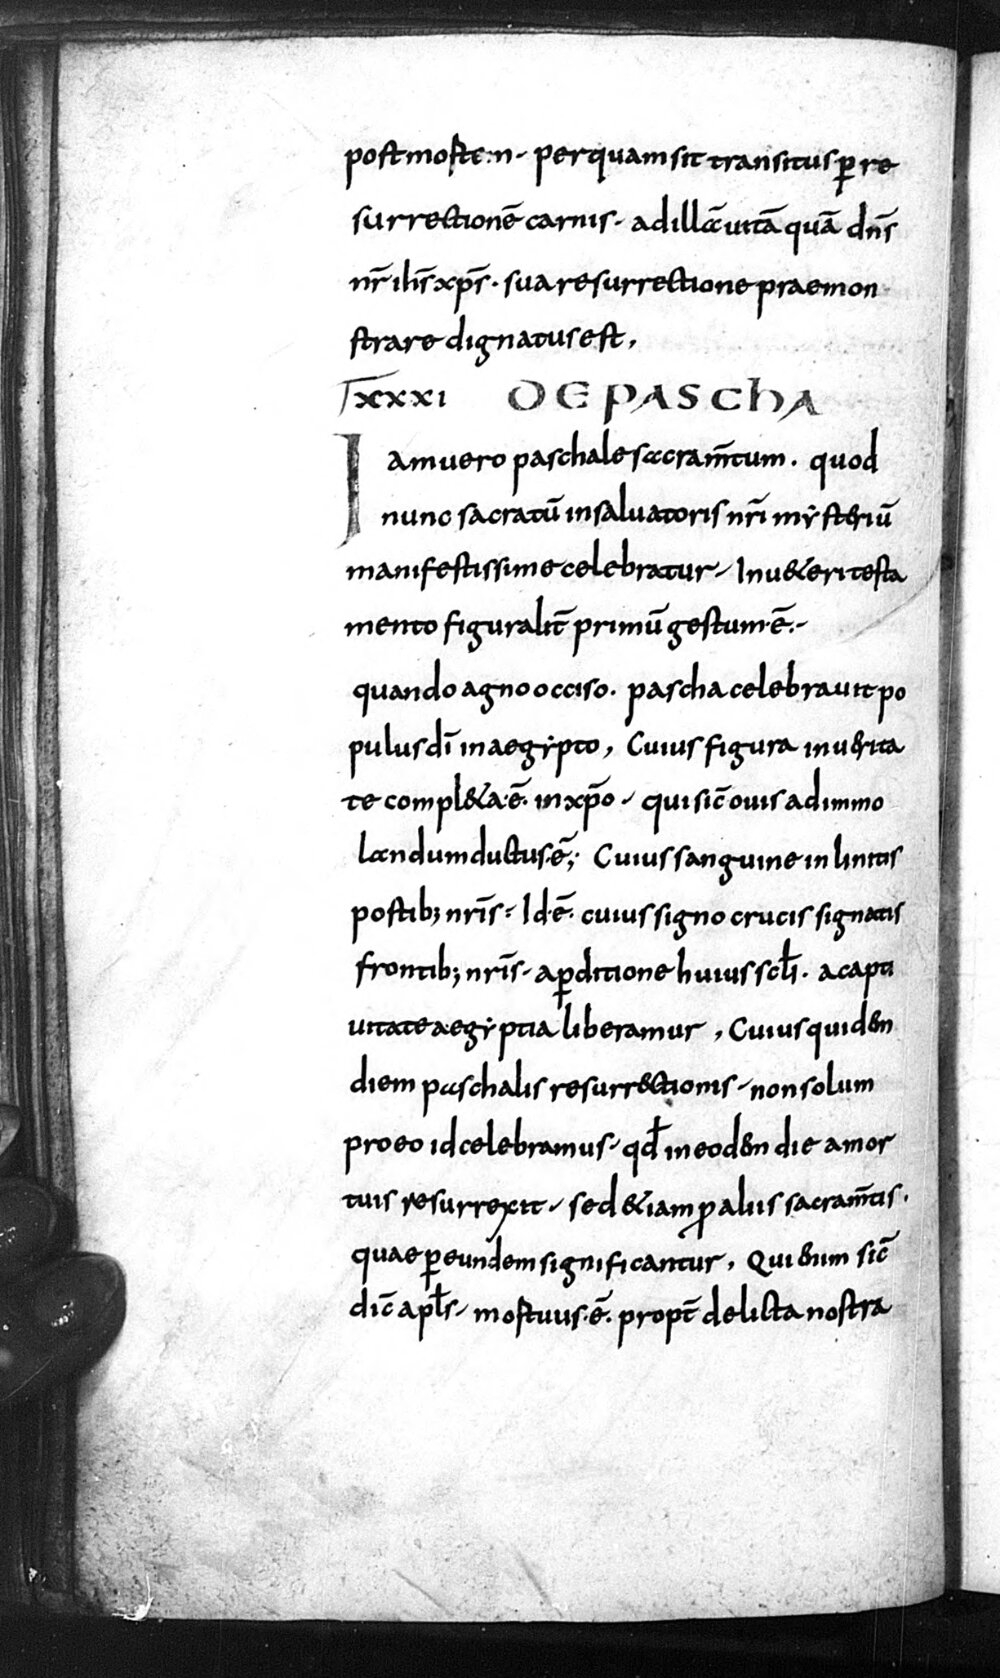 post mortem· per quam sit transitus ꝑ re
surrectionē carnis· ad illā uitā quā dn̄s
nr̄ ih̄s xp̄s· sua resurrectione praemon
strare dignatus est,
XXXI DE PASCHA
Iam uero paschale sacram̄tum· quod
nunc sacratū in saluatoris nr̄i mẏsteriū
manifestissime celebratur· In u&eri testa
mento figuralit̄ primū gestum·ē·
quando agno occiso· pascha celebrauit po
pulus dī in aegẏpto, Cuius figura in uerita
te compl&a·ē· in xp̄o· qui sic̄ ouis ad immo
landum ductus·ē; Cuius sanguine inlinitis
postib; nr̄is· Id·ē· cuius signo crucis signatis
frontib; nr̄is· a ꝑditione huius scl̄i· a capti
uitate aegẏptia liberamur, Cuius quidem
diem paschalis resurr&ctionis· non solum
pro eo id celebramus· qd̄ in eodem die a mor
tuis resurrexit· sed &iam ꝓ aliis sacram̄tis·
quae ꝑ eundem significantur, Qui enim sic̄
dic̄ apl̄s· mortuus·ē· propt̄ delicta nostra